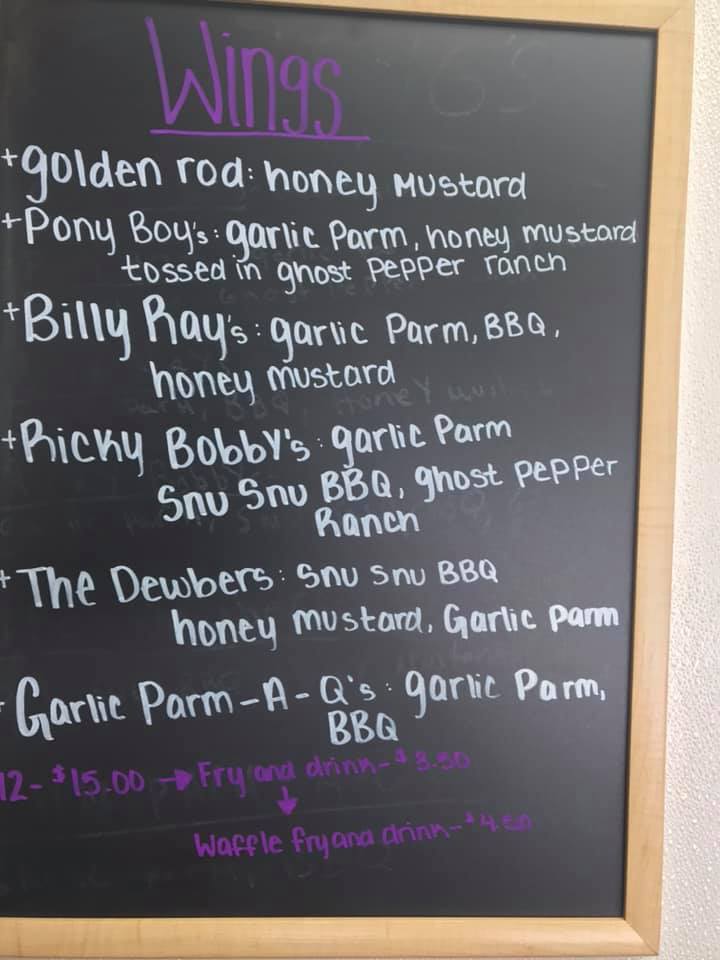 Wings
+golden rod: honey mustard
+Pony Boy's: garlic Parm, honey mustard
tossed in ghost pepper ranch
+Billy Ray's: garlic Parm, BBQ,
honey mustard
+Ricky Bobby's: garlic Parm
Snu Snu BBQ, ghost pepper
Ranch
+ The Dewbers: Snu Snu BBQ
honey mustard, Garlic parm
+ Garlic Parm-A-Q's: garlic Parm,
BBQ
12- $15.00 → Fry and drink- $3.50
↓
Waffle fry and drink- $4.50